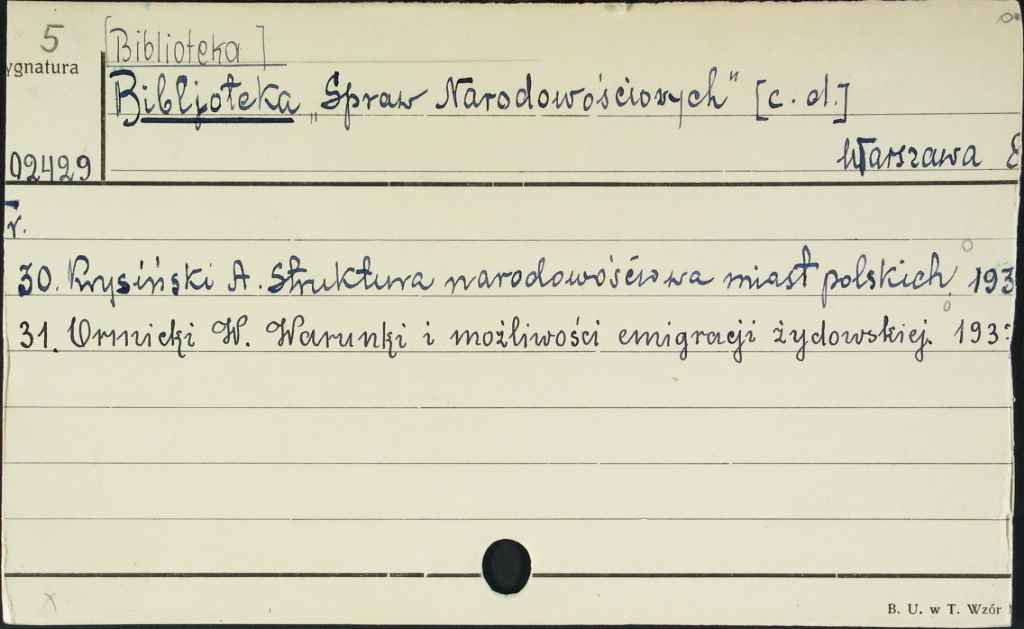 5 [Biblioteka]
ygnatura
Bibljoteka „Spraw Narodowościowych" [c. d.]
02429 Warszawa
Nr.
30. Krysiński A. Struktura narodowościowa miast polskich, 193
31. Ormicki W. Warunki i możliwości emigracji żydowskiej. 193
B. U. w T. Wzór